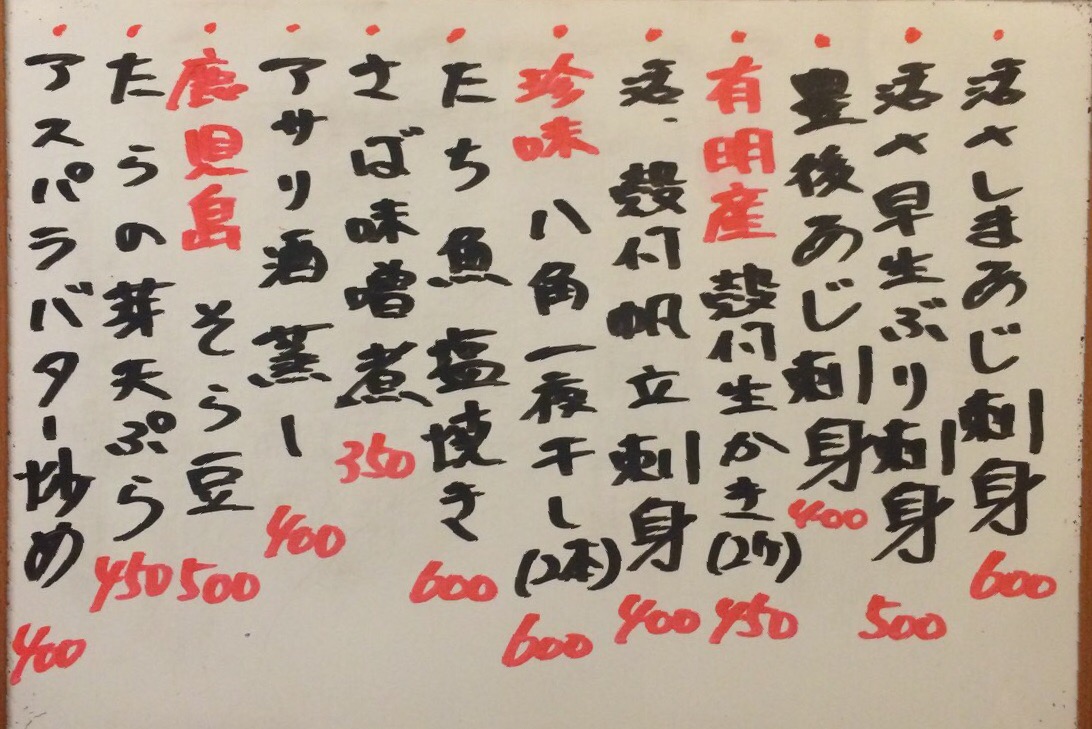 活〆しまあじ刺身 600
活〆早生ぶり刺身 500
豊後あじ刺身 400
有明産 殻付生かき(2ケ) 450
活、殻付帆立刺身 400
珍味 八角一夜干し(2本) 600
たち魚塩焼き 600
さば味噌煮 350
アサリ酒蒸し 400
鹿児島 そら豆 500
たらの芽天ぷら 450
アスパラバター炒め 400